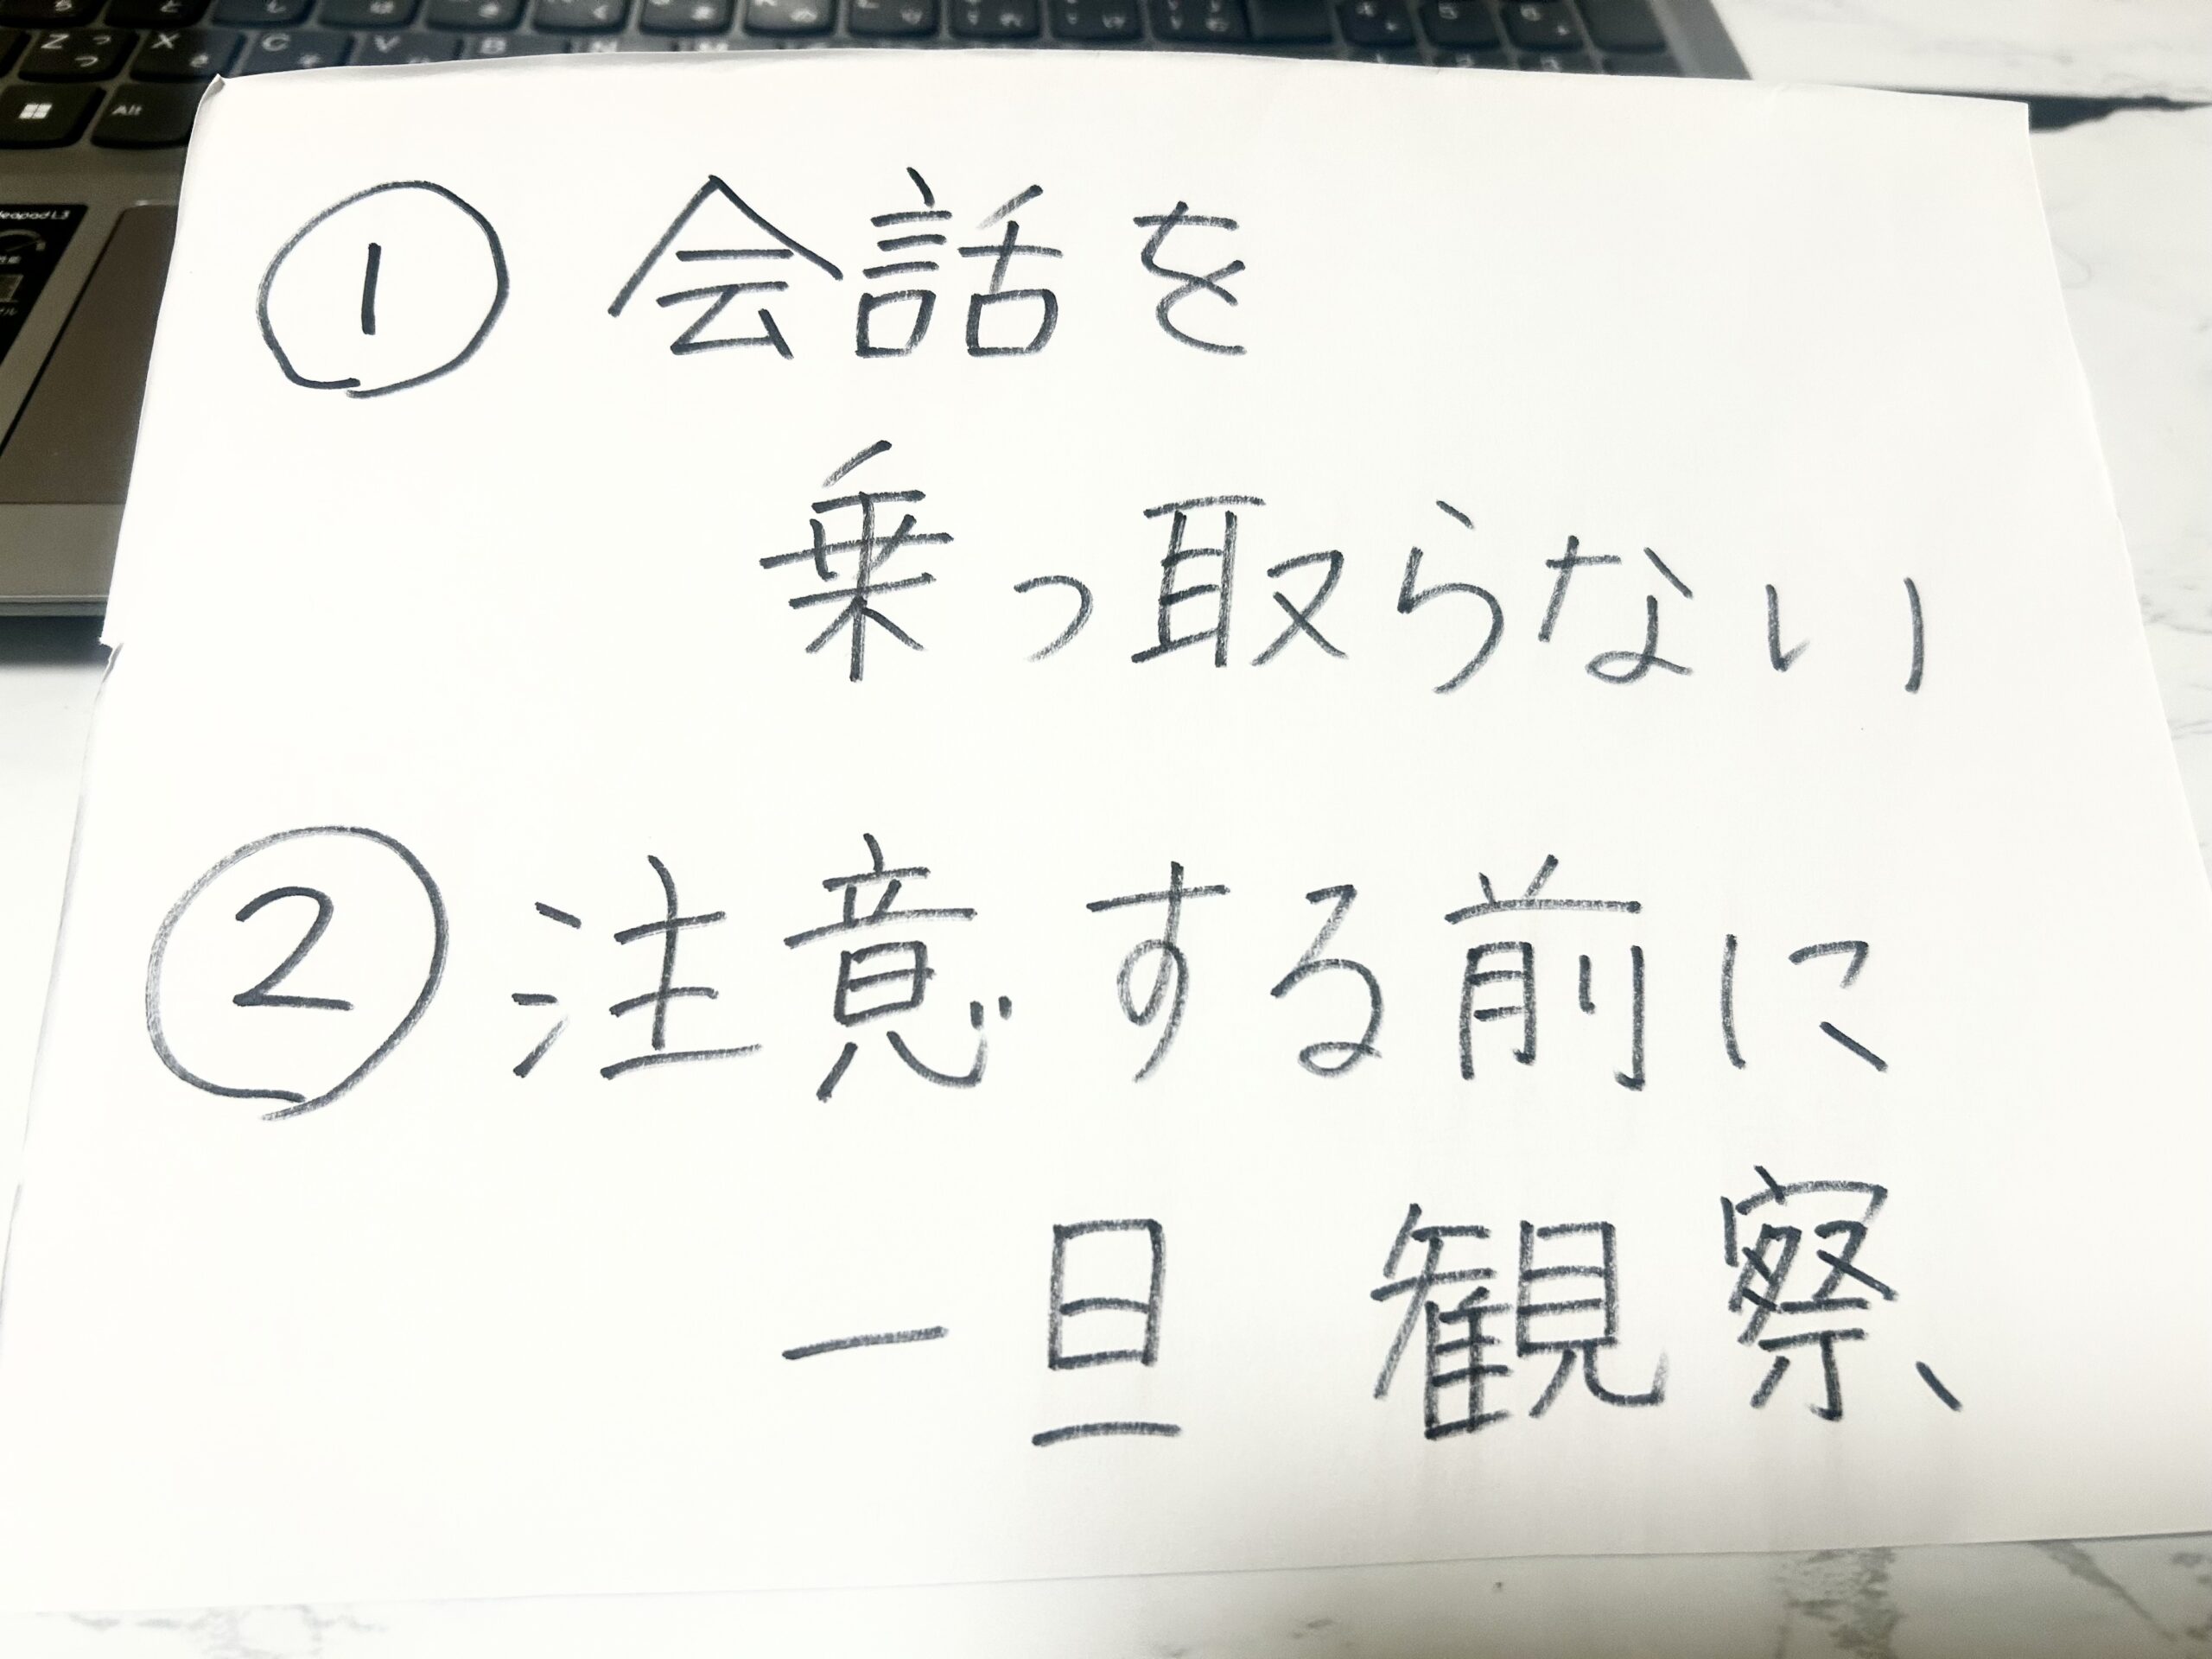 Z つ X C V B N M
Alt
ideapad L3
① 会話を
乗っ取らない
② 注意する前に
一旦 観察、